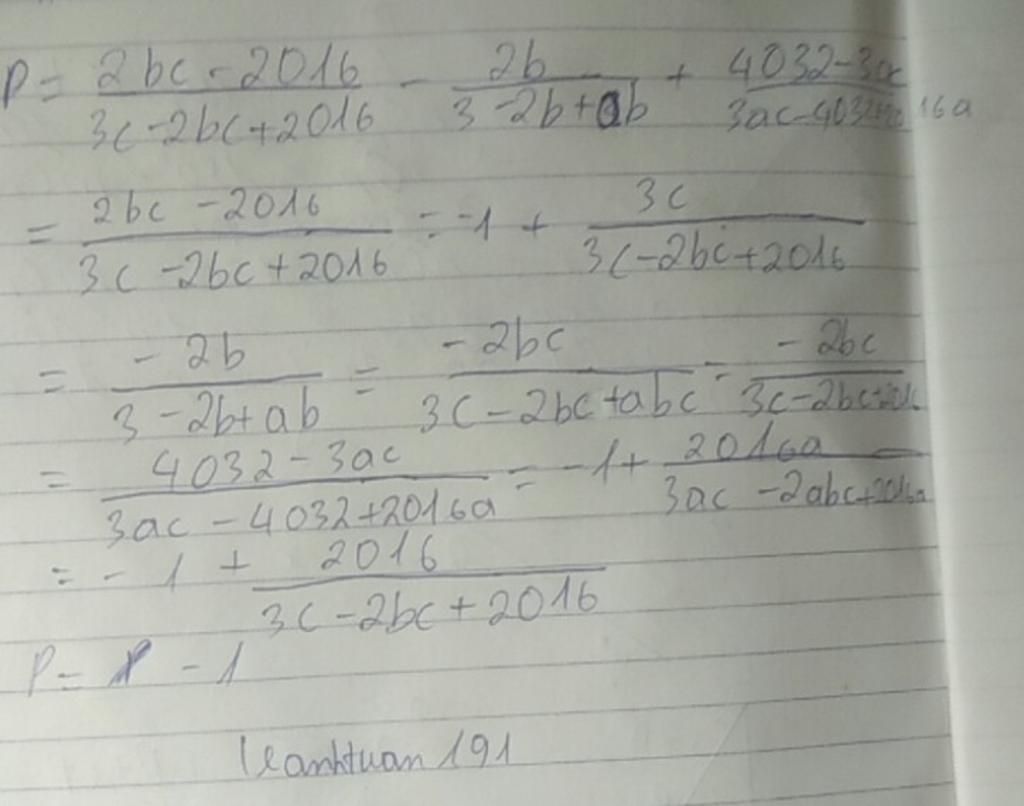 P = \frac{2bc - 2016}{3c - 2bc + 2016} - \frac{2b}{3 - 2b + ab} + \frac{4032 - 3ac}{3ac - 4032 + 2016a}
= \frac{2bc - 2016}{3c - 2bc + 2016} = -1 + \frac{3c}{3c - 2bc + 2016}
= \frac{-2b}{3 - 2b + ab} = \frac{-2bc}{3c - 2bc + abc} = \frac{-2bc}{3c - 2bc + 2016}
= \frac{4032 - 3ac}{3ac - 4032 + 2016a} = -1 + \frac{2016a}{3ac - 2abc + 2016a}
= -1 + \frac{2016}{3c - 2bc + 2016}
P = -1
191